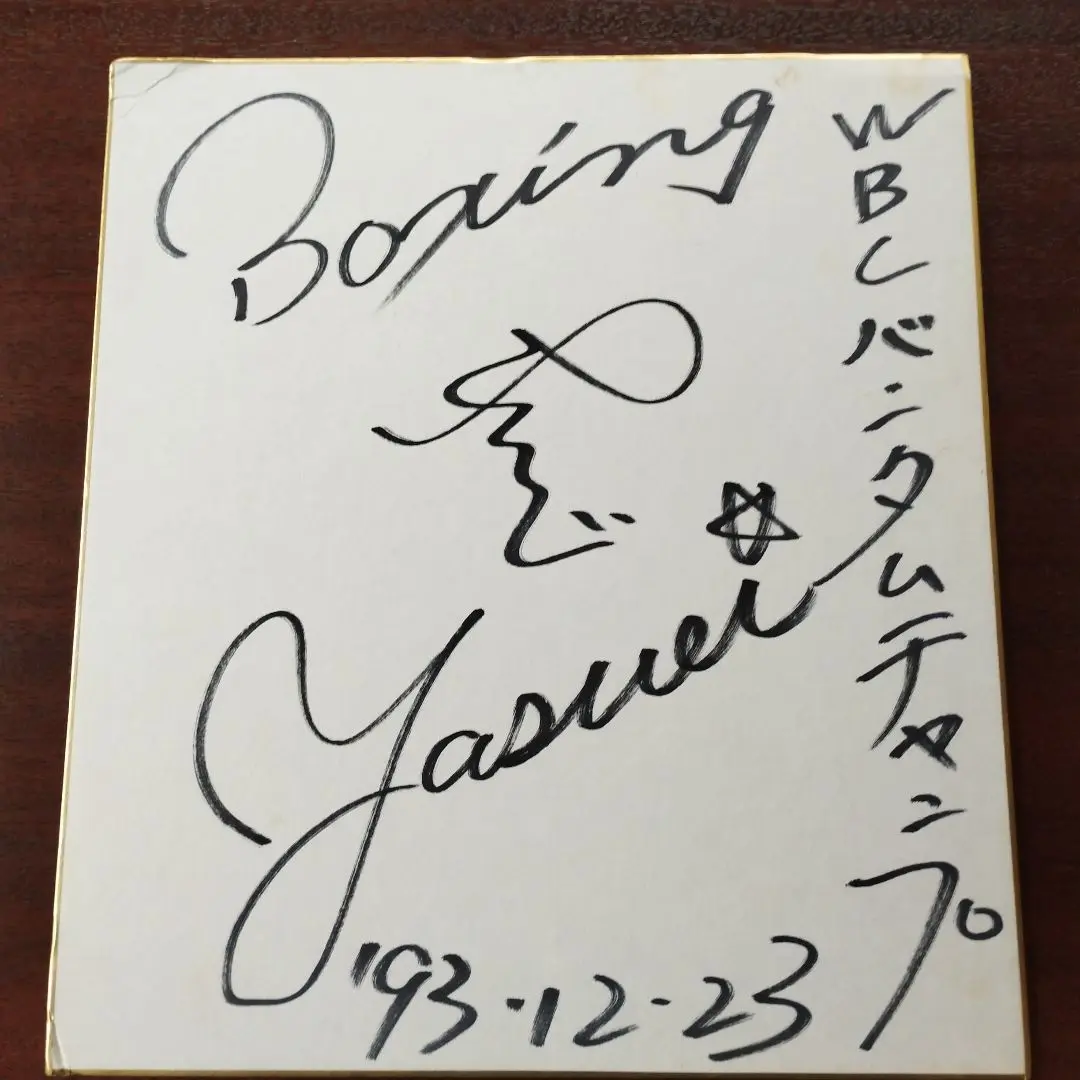 WBCバンタムチャンプ
Boxing
Yasuei
'93・12・23